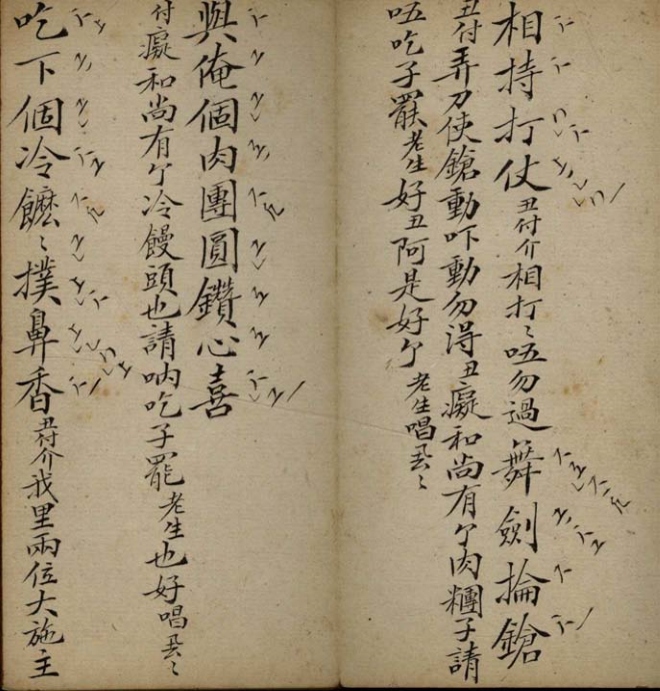 相持打仗丑付介相打〻唔勿過舞劍掄鎗
丑付弄刀使鎗動吓動勿得丑癡和尚有个肉糰子請
唔吃子罷老生好丑阿是好个老生唱
與俺個肉團圓鑽心喜
付癡和尚有个冷饅頭也請吶吃子罷老生也好唱
吃下個冷饝〻撲鼻香丑付介我里兩位大施主